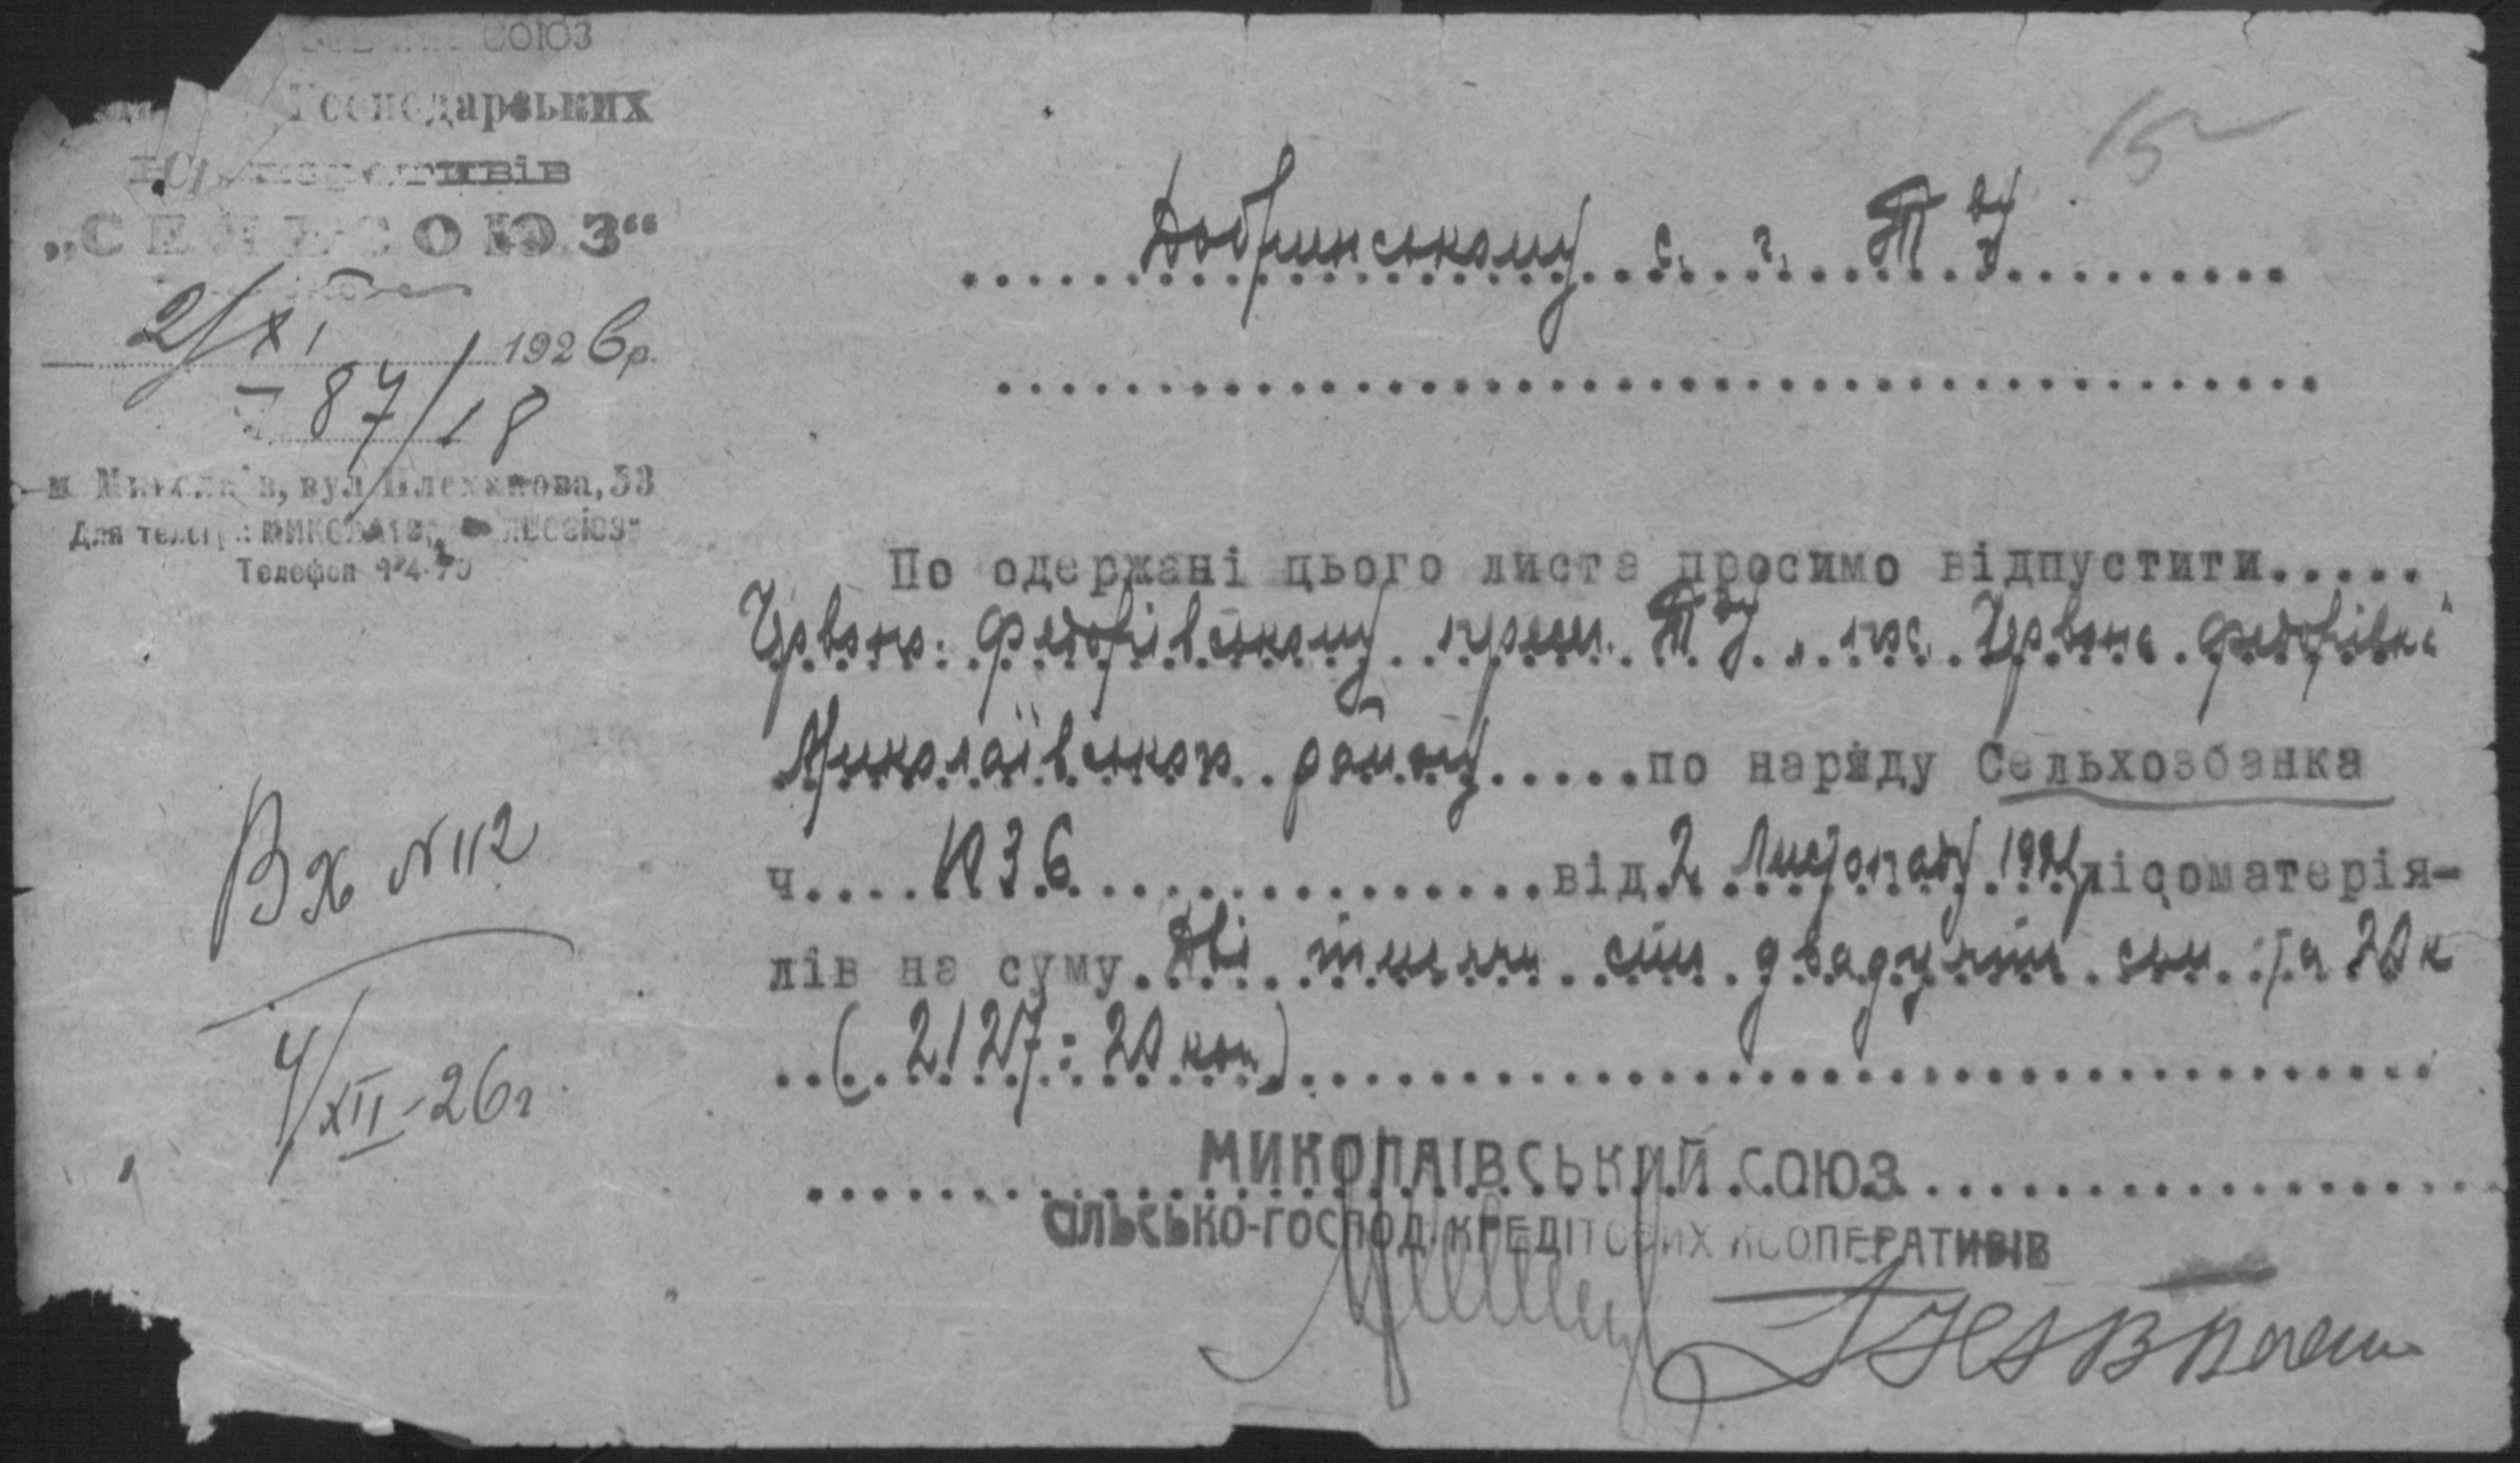 СОЮЗ
Господарських
Кооперативів
„СЕЛЬСОЮЗ“
2/XI 1926 р.
87/18
м Миколаїв, вул Плеханова, 53
Для телегр.: МИКОЛАЇВ,
Телефон
15
Добринському с. г. Т ву
По одержані цього листа просимо відпустити.....
Червоно. Федорівському Т ву „ Червона Федорівка“
Миколаївського району.....по наряду Сельхозбанка
ч.... 1036 ....від 2 Листопаду 1926 лісоматерія-
лів на суму Дві тисячи сто двадцять сім та 20 к
(2127=20 коп)
Вх № 112
4/XII-26 г
МИКОЛАІВСЬКИЙ СОЮЗ
СІЛЬСЬКО-ГОСПОД. КРЕДІТОВИХ КООПЕРАТИВІВ